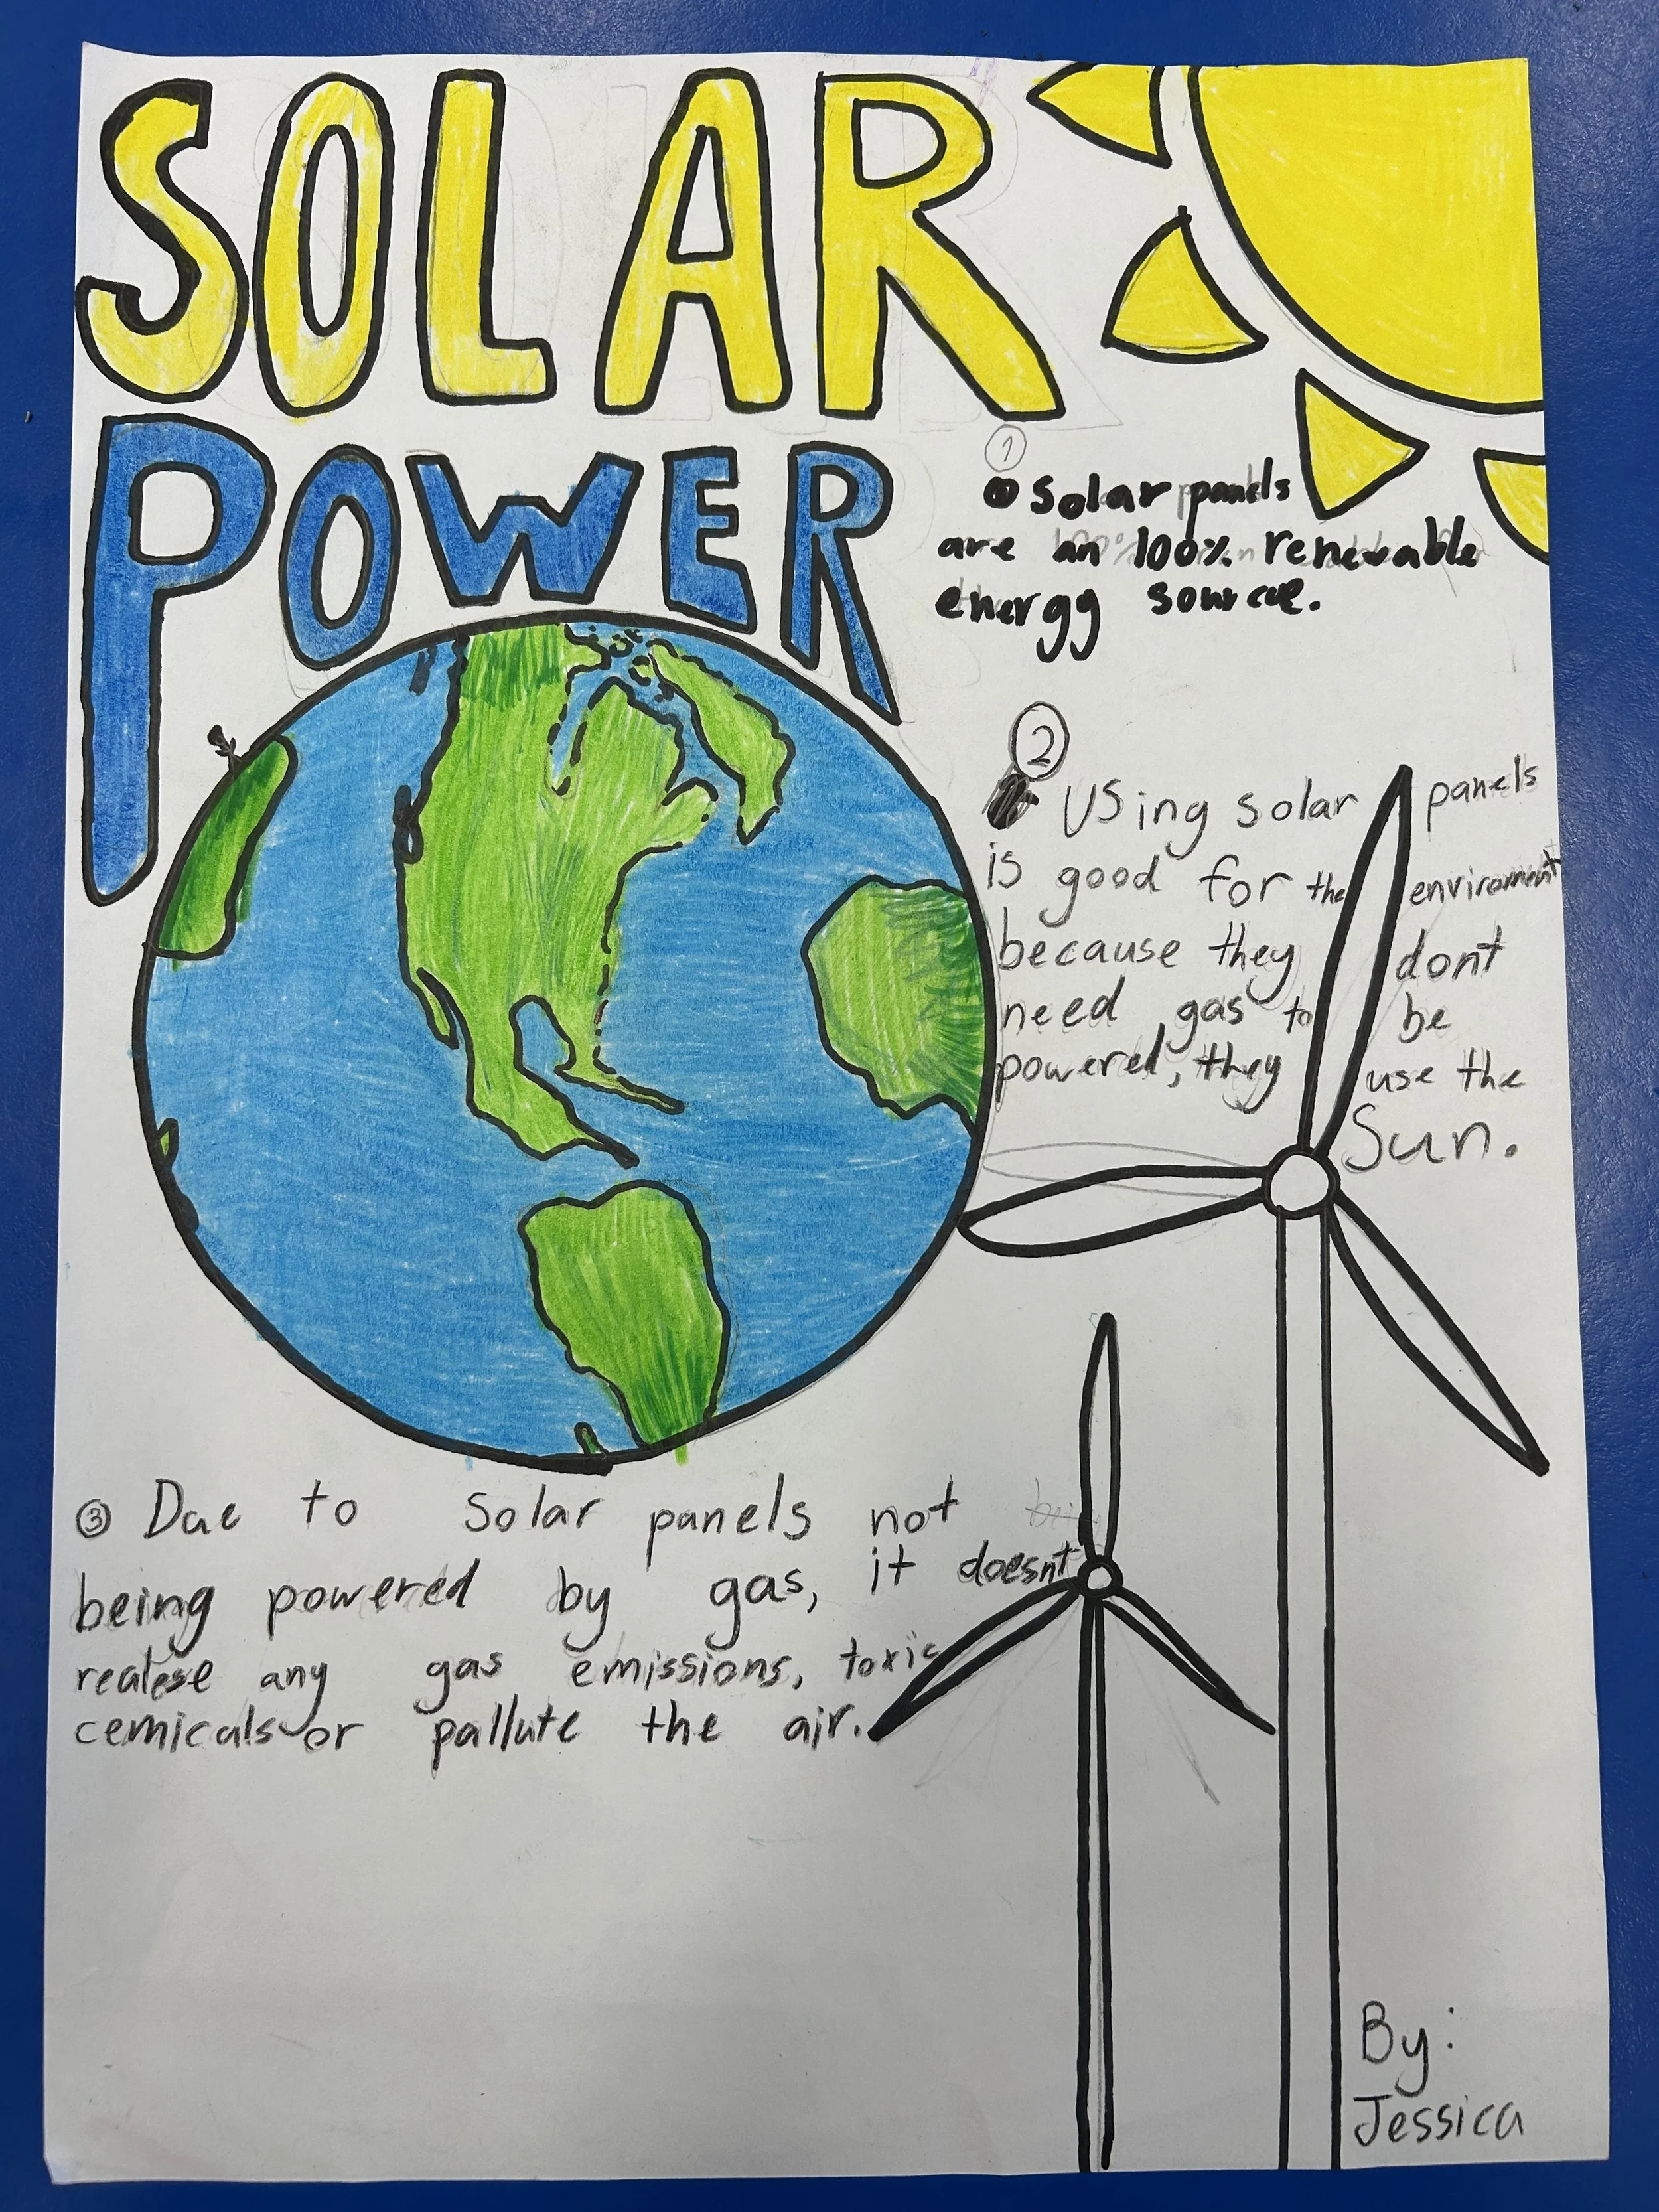 SOLAR
POWER
1
Solar panels
are an 100% renewable
energy source.
2
Using solar panels
is good for the enviroment
because they dont
need gas to be
powered, they use the
Sun.
3 Due to Solar panels not
being powered by gas, it doesnt
realese any gas emissions, toxic
cemicals or pallute the air.
By:
Jessica